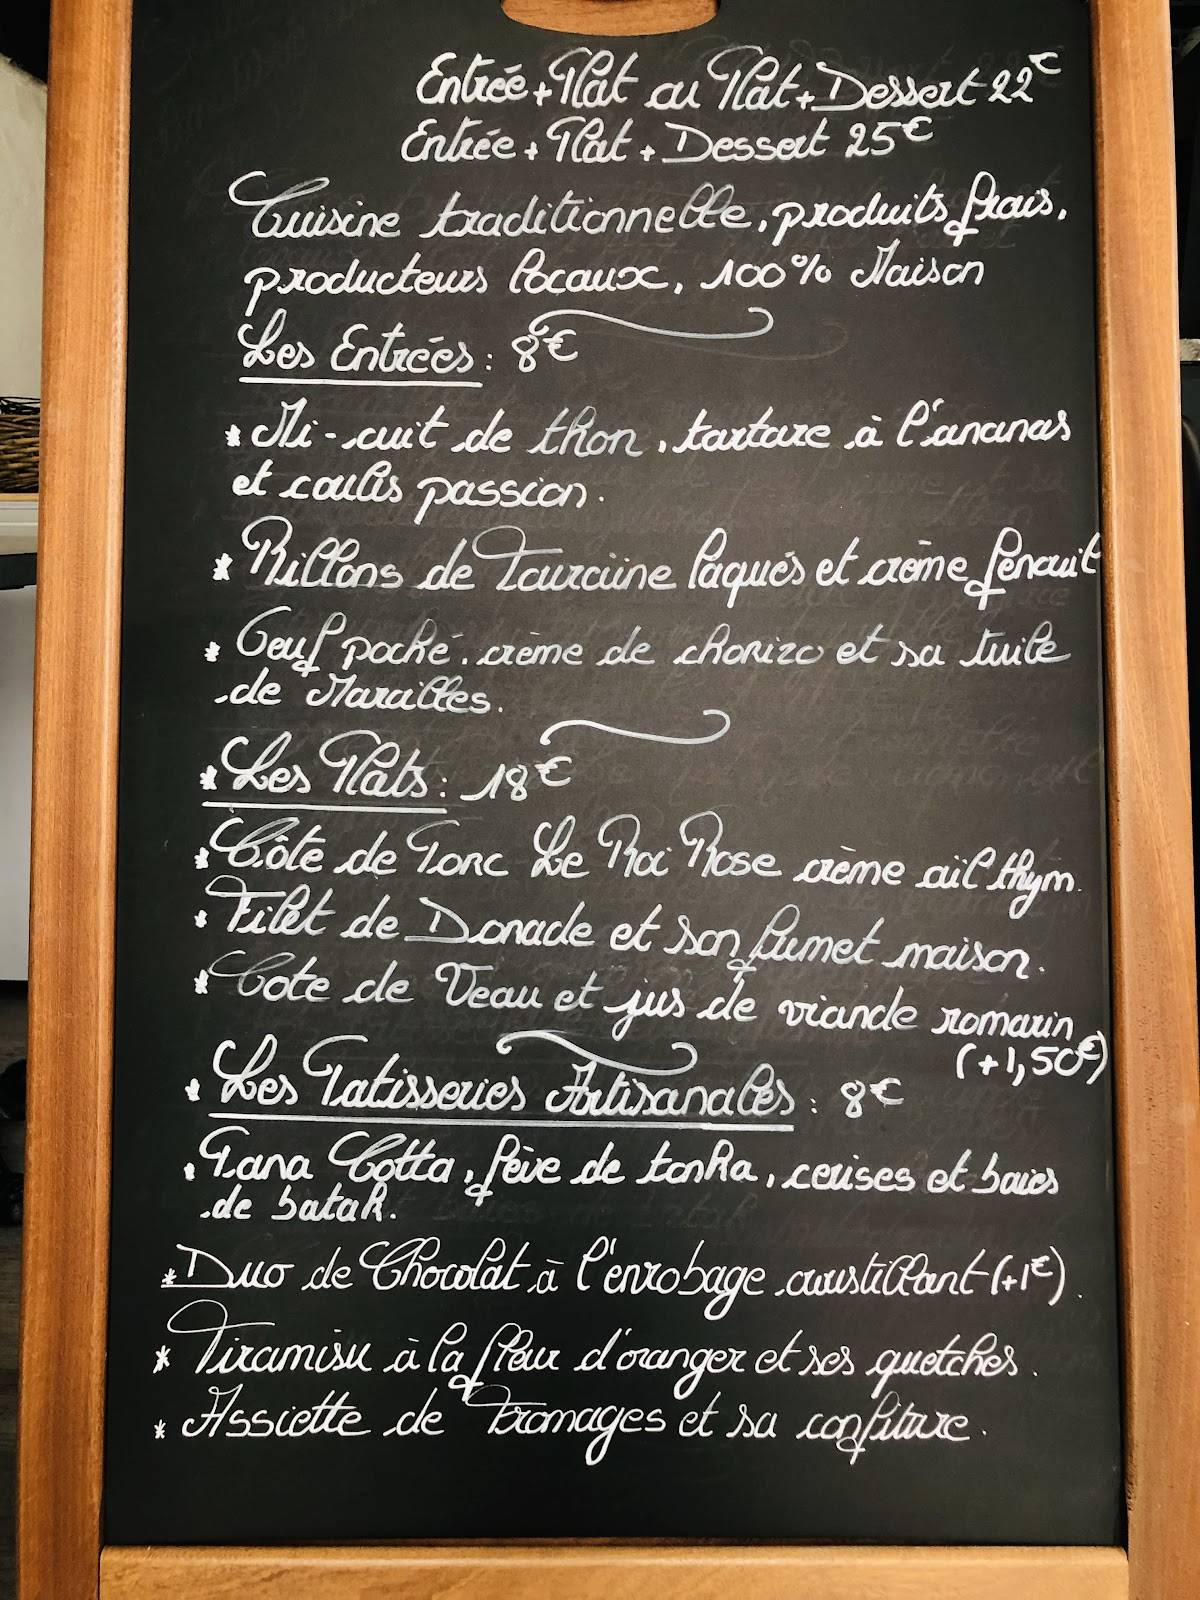 Entrée + Plat ou Plat + Dessert 22€
Entrée + Plat + Dessert 25€
Cuisine traditionnelle, produits frais,
producteurs locaux, 100% Maison
Les Entrées : 8€
* Mi-cuit de thon, tartare à l'ananas
et coulis passion.
* Rillons de Touraine laqués et crème fenouil
* Oeuf poché, crème de chorizo et sa tuile
de Maroilles.
* Les Plats : 18€
* Côte de Porc Le Roi Rose crème aïl thym.
* Filet de Dorade et son fumet maison.
* Cote de Veau et jus de viande romarin
(+1,50€)
* Les Patisseries Artisanales : 8€
* Pana Cotta, fève de tonka, cerises et baies
de batak.
* Duo de Chocolat à l'enrobage croustillant (+1€).
* Tiramisu à la fleur d'oranger et ses quetches.
* Assiette de Fromages et sa confiture.